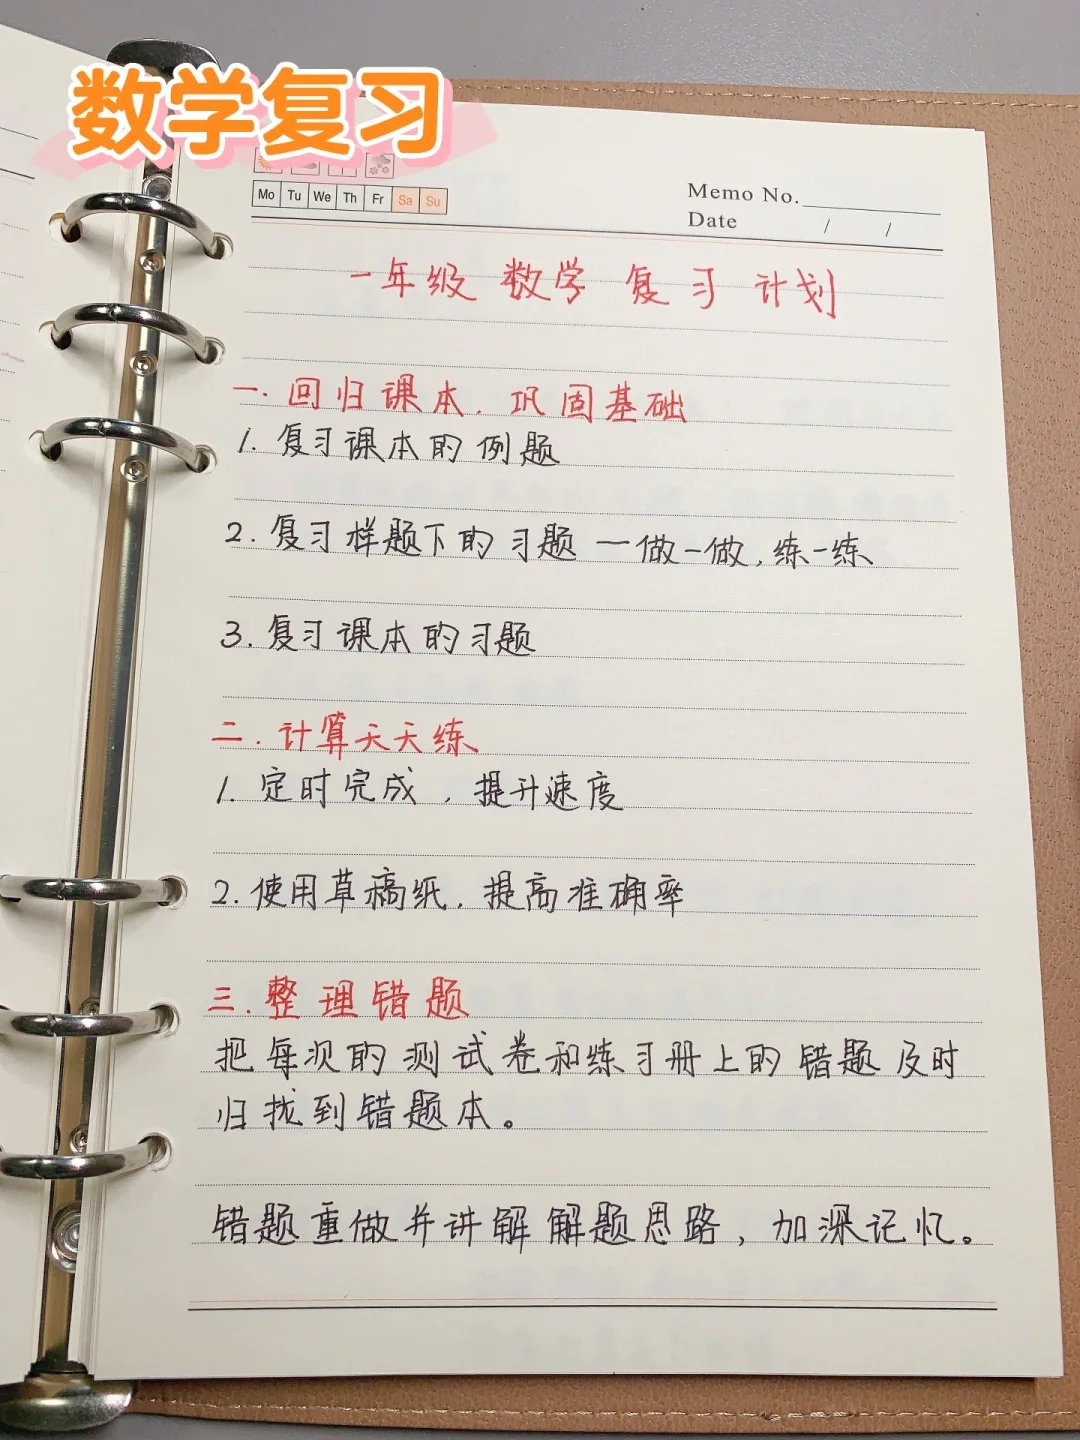 数学复习
Mo Tu We Th Fr Sa Su
Memo No.
Date / /
一年级 数学 复习 计划
一.回归课本.巩固基础
1.复习课本的例题
2.复习样题下的习题 一做一做,练一练
3.复习课本的习题
二.计算天天练
1.定时完成,提升速度
2.使用草稿纸.提高准确率
三.整理错题
把每次的测试卷和练习册上的错题及时
归找到错题本。
错题重做并讲解解题思路,加深记忆。